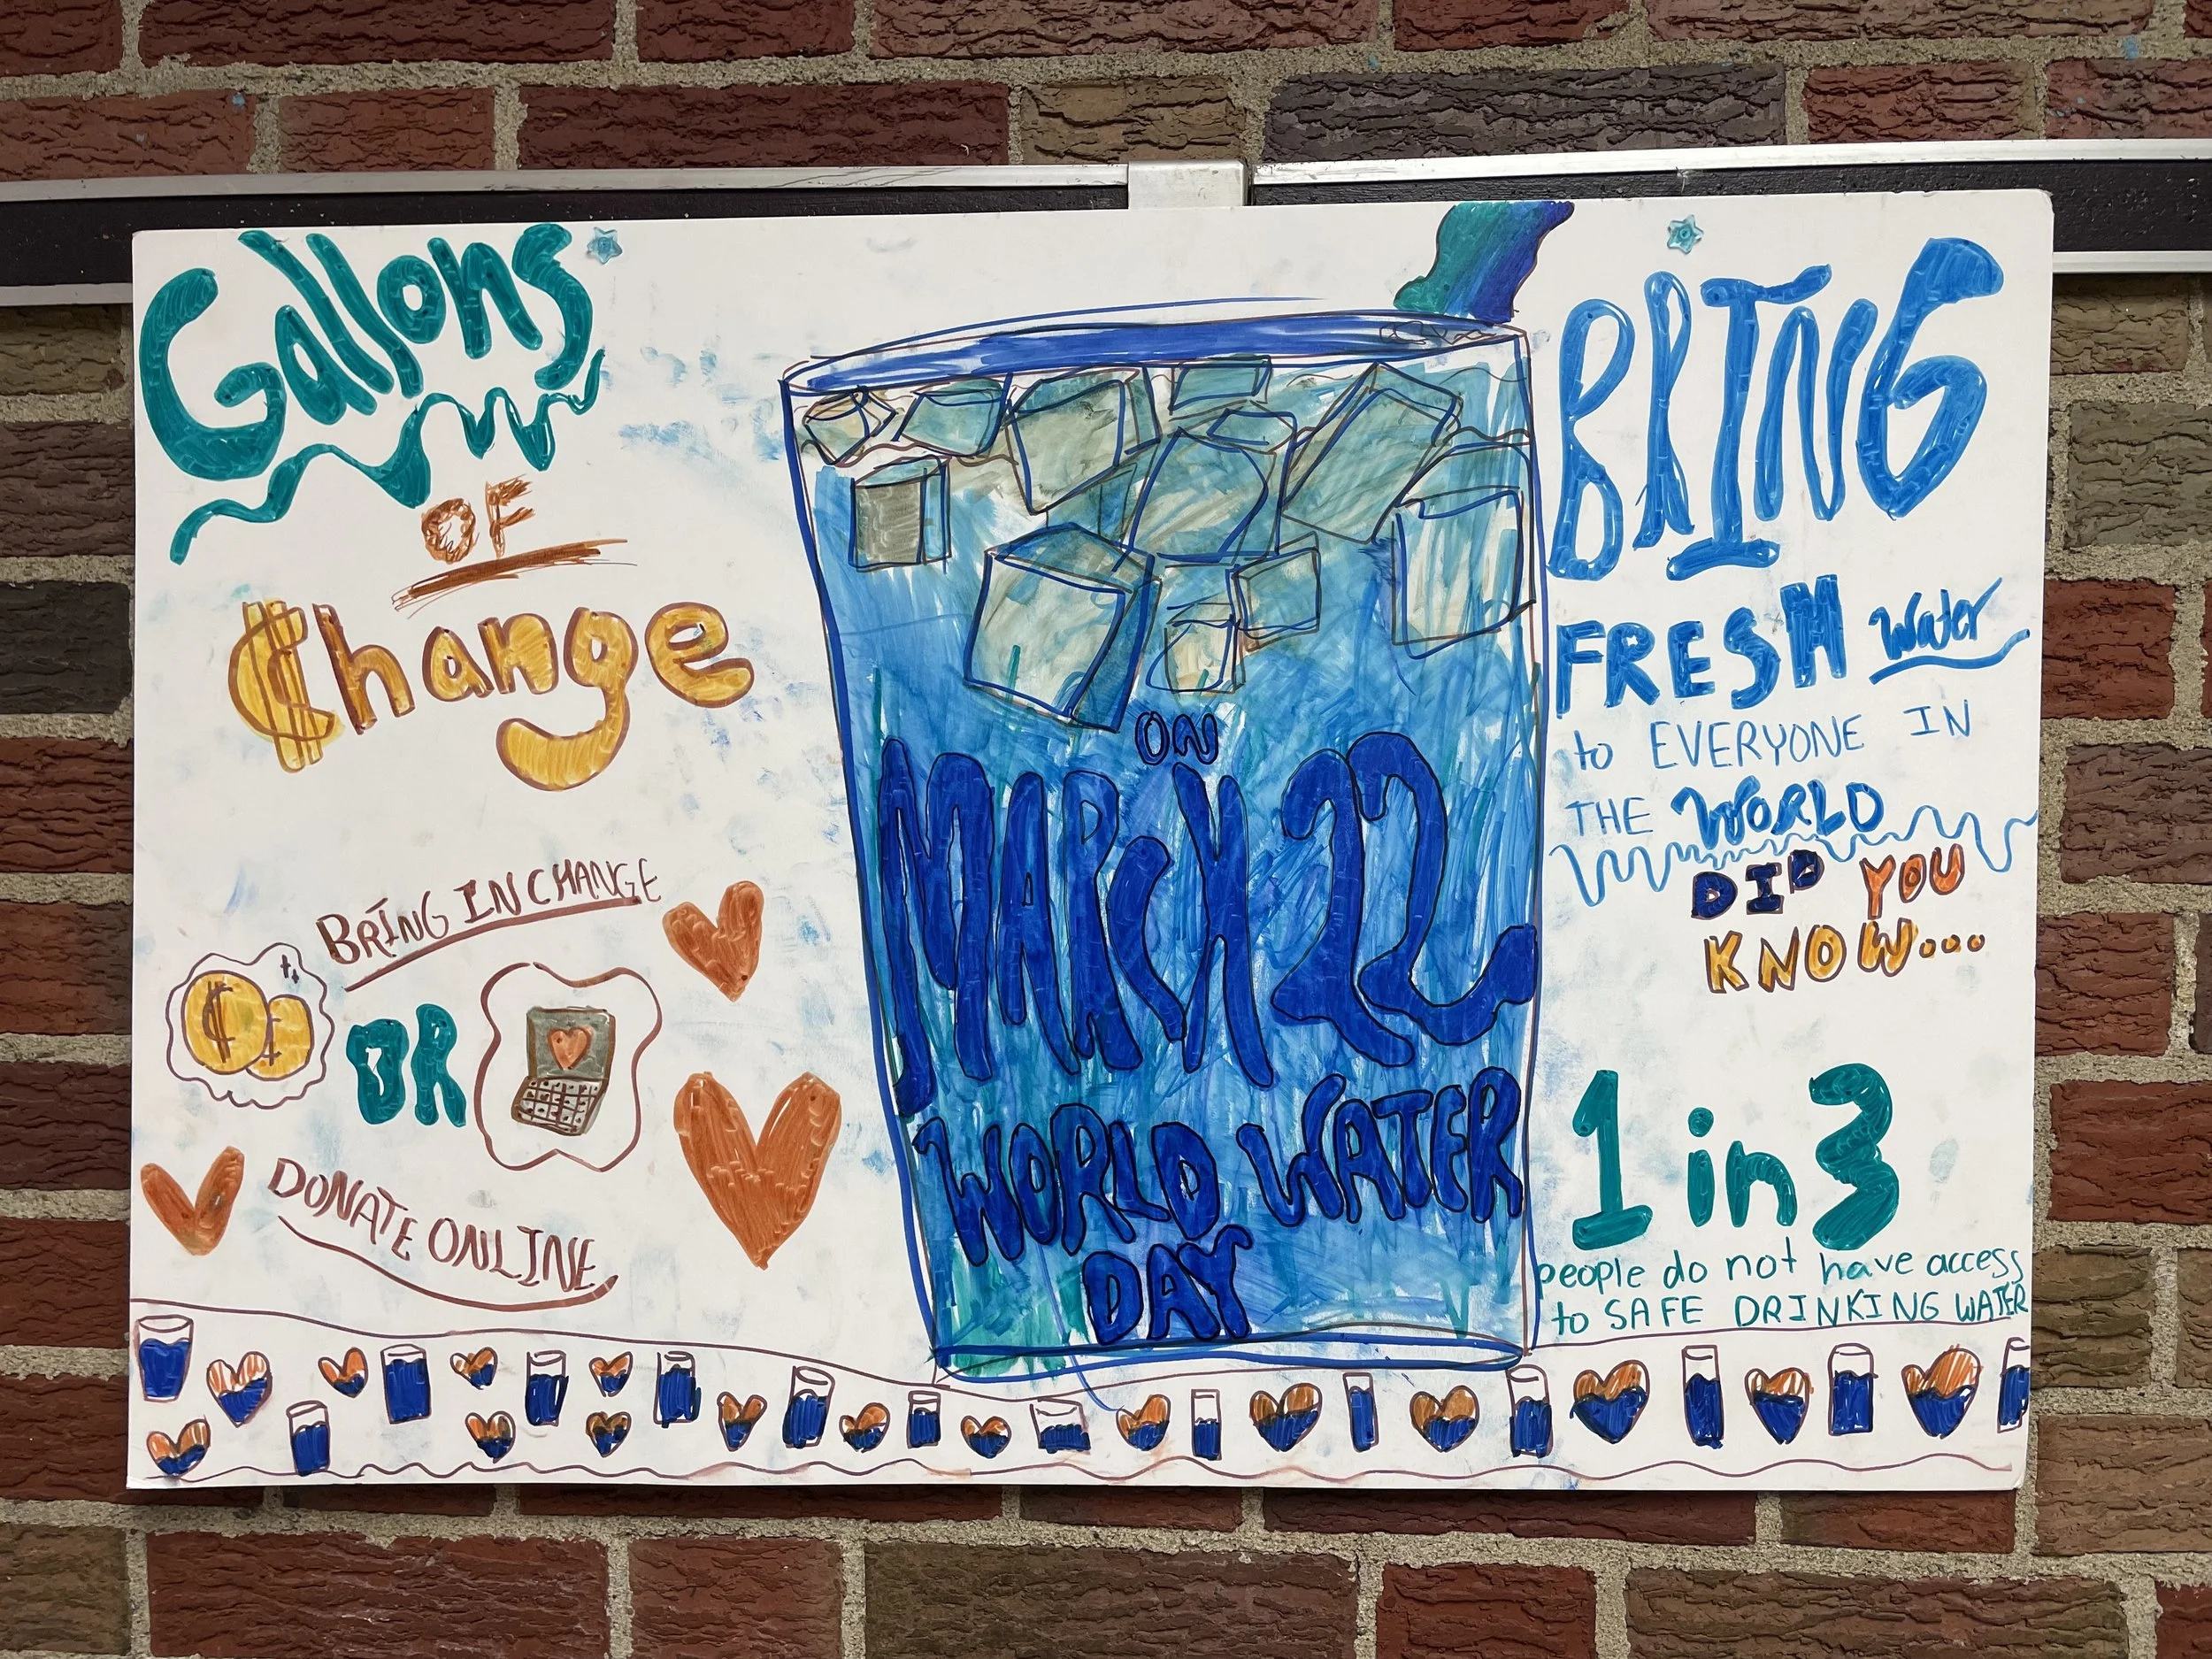 Gallons
OF
Change
BRING IN CHANGE
OR
DONATE ONLINE
ON
MARCH 22
WORLD WATER
DAY
BRING
FRESH Water
to EVERYONE IN
THE WORLD
DID YOU
KNOW...
1 in 3
people do not have access
to SAFE DRINKING WATER